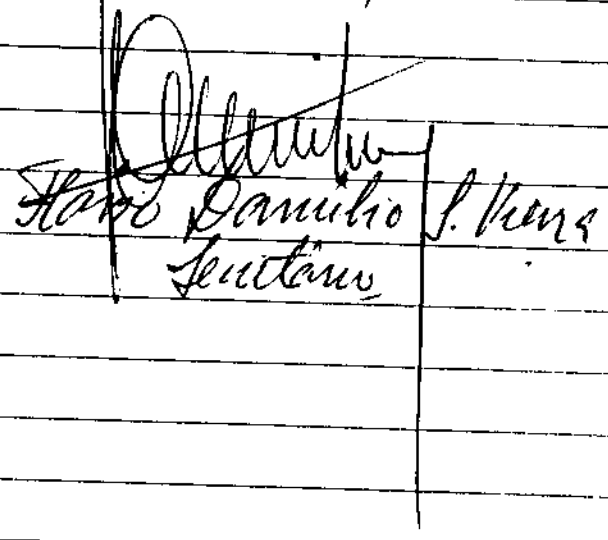 Flavio Danulio S. Vieira
Secretário